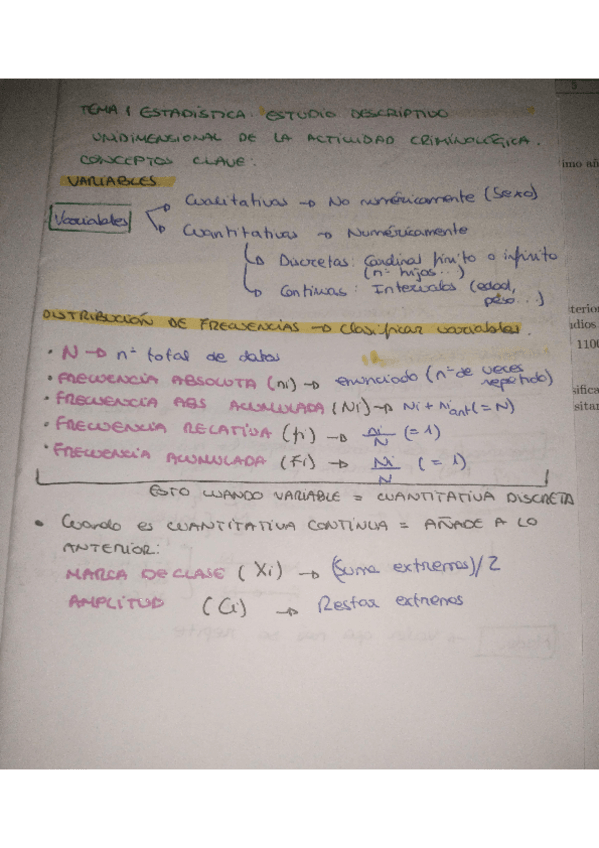 TEMA 1 ESTADÍSTICA: ESTUDIO DESCRIPTIVO
UNIDIMENSIONAL DE LA ACTIVIDAD CRIMINOLÓGICA.
CONCEPTOS CLAVE:
VARIABLES
Variables
Cualitativas → No numéricamente (Sexo)
Cuantitativas → Numéricamente
Discretas: Cardinal finito o infinito
(nº hijos...)
Continuas: Intervalos (edad,
peso...)
DISTRIBUCIÓN DE FRECUENCIAS → Clasificar variables.
• N → nº total de datos
• FRECUENCIA ABSOLUTA (ni) → enunciado (nº de veces
repetido)
• FRECUENCIA ABS ACUMULADA (Ni) → Ni + Ni ant (= N)
• FRECUENCIA RELATIVA (fi) → ni/N (= 1)
• FRECUENCIA ACUMULADA (Fi) → Ni/N (= 1)
ESTO CUANDO VARIABLE = CUANTITATIVA DISCRETA
• Cuando es CUANTITATIVA CONTÍNUA = AÑADE A LO
ANTERIOR:
MARCA DE CLASE (Xi) → (Suma extremos)/2
AMPLITUD (Ci) → Restar extremos
imo añ
terior
dios
1100
sifica
sitar